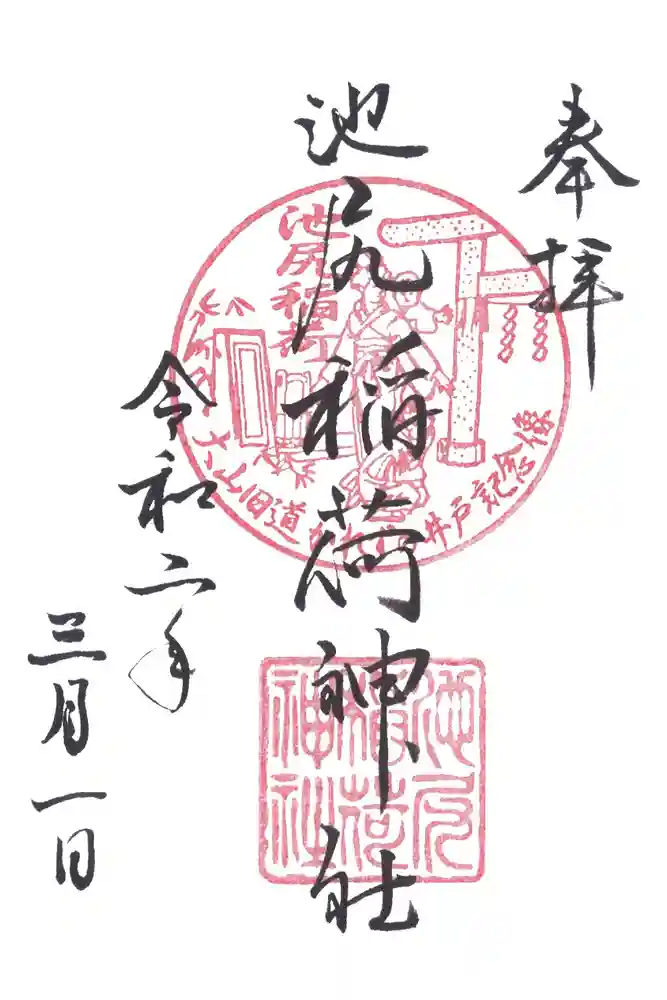 奉拝
池尻稲荷神社
令和二年
三月一日
池尻稲荷
大山旧道
井戸記念像
池尻
稲荷
神社